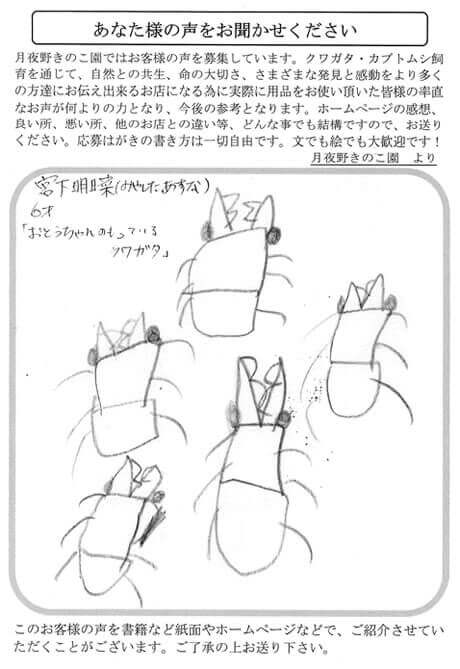 あなた様の声をお聞かせください
月夜野きのこ園ではお客様の声を募集しています。クワガタ・カブトムシ飼
育を通じて、自然との共生、命の大切さ、さまざまな発見と感動をより多く
の方達にお伝え出来るお店になる為に実際に用品をお使い頂いた皆様の率直
なお声が何よりの力となり、今後の参考となります。ホームページの感想、
良い所、悪い所、他のお店との違い等、どんな事でも結構ですので、お送り
ください。応募はがきの書き方は一切自由です。文でも絵でも大歓迎です！
月夜野きのこ園 より
宮下明日菜(みやした あすな)
6才
「おとうちゃんのもっている
クワガタ」
このお客様の声を書籍など紙面やホームページなどで、ご紹介させてい
ただくことがございます。ご了承の上お送り下さい。